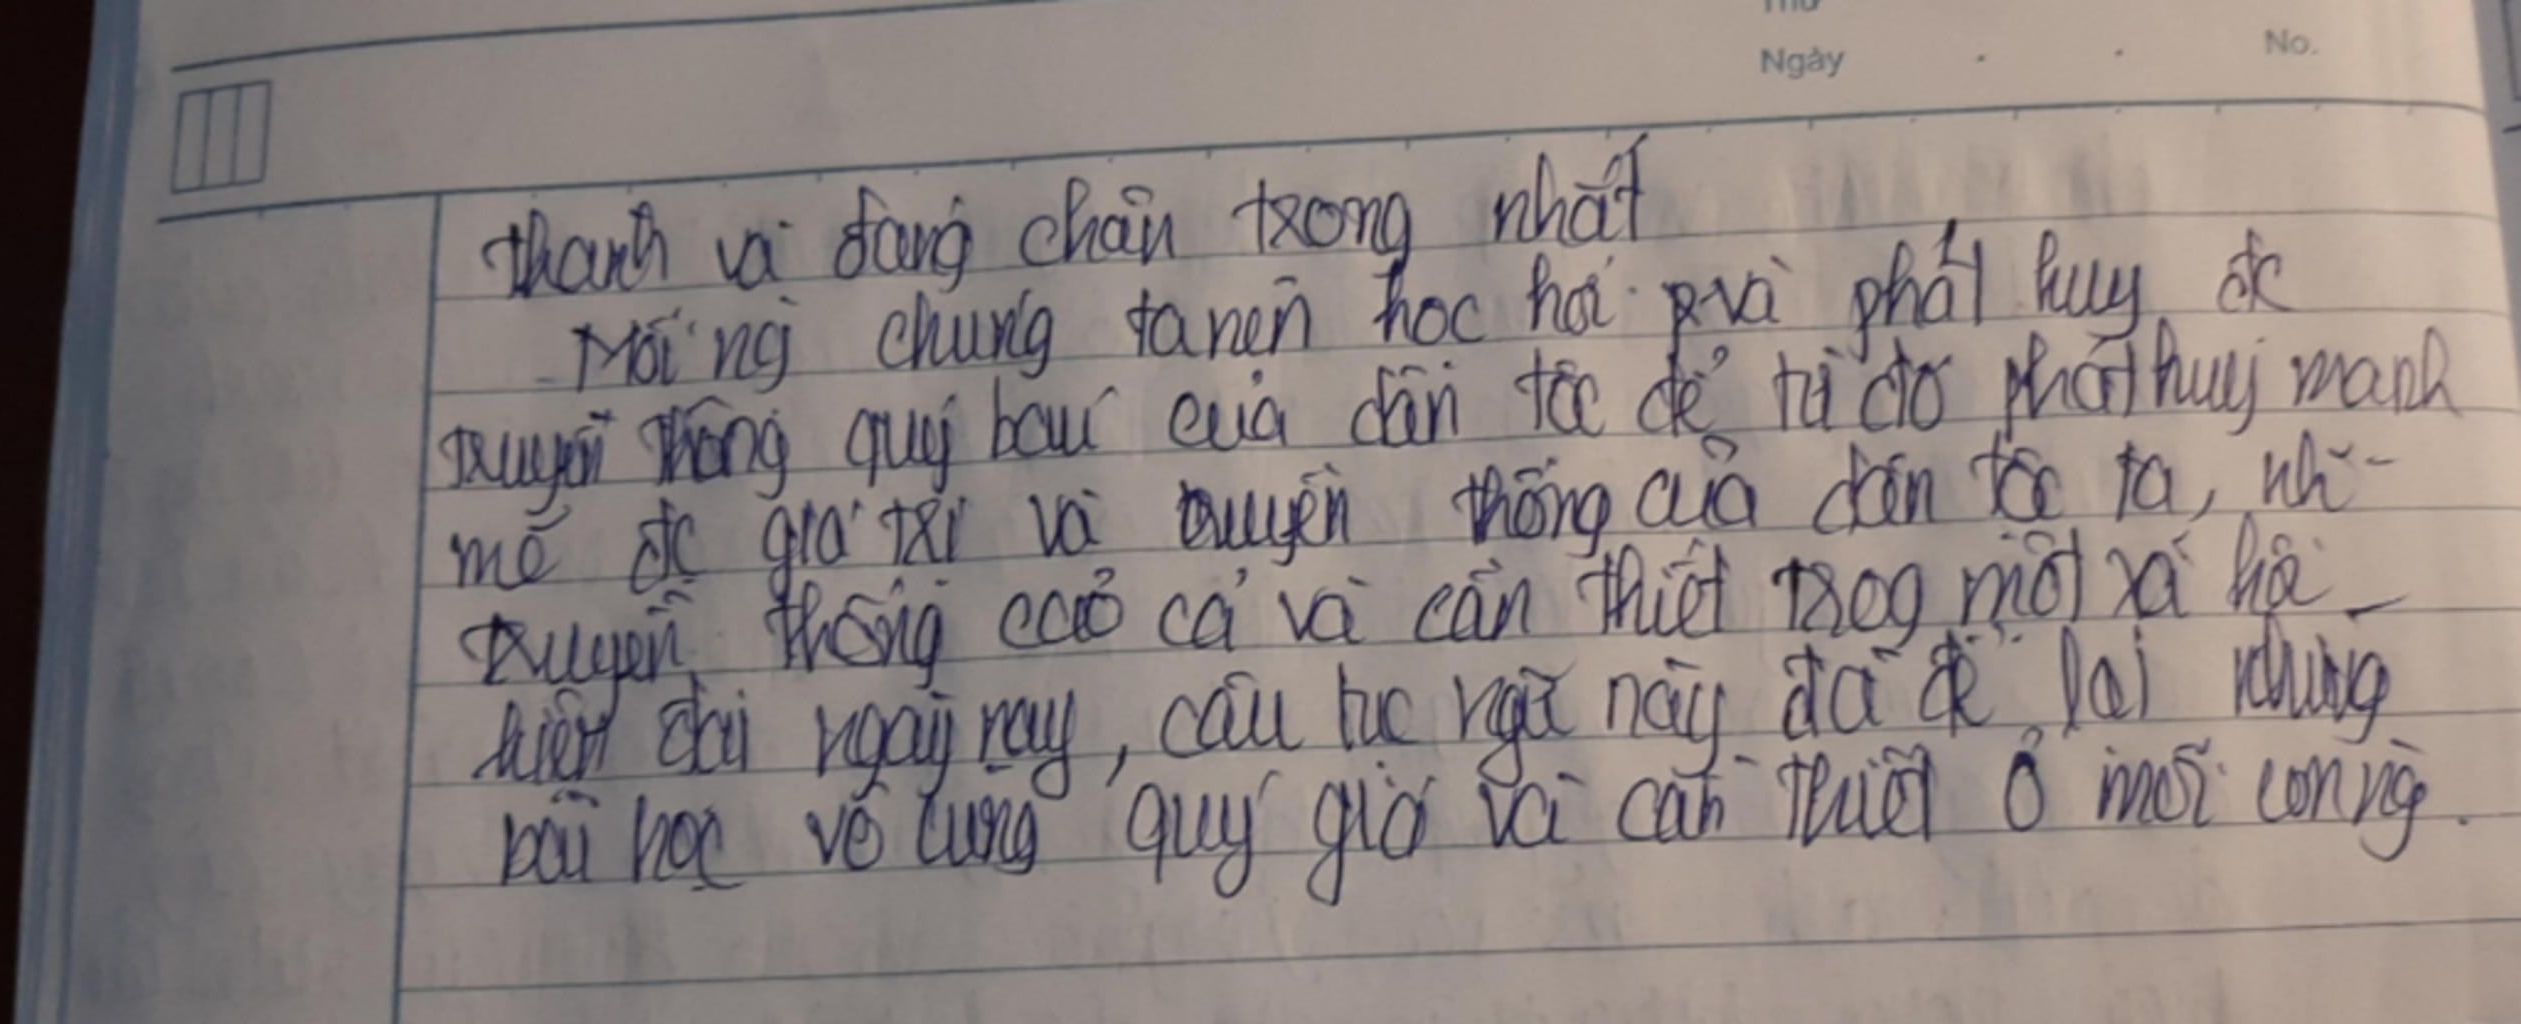 Ngày No.
thanh và đáng chân trọng nhất
Mỗi ng chúng ta nên học hỏi và phát huy đc
truyền thống quý báu của dân tộc để từ đó phát huy mạnh
mẽ đc giá trị và truyền thống của dân tộc ta, nh
truyền thống cao cả và cần thiết trog một xã hội
hiện đại ngày nay, câu tục ngữ này đã để lại những
bài học vô cùng quý giá và cần thiết ở mỗi con ng.